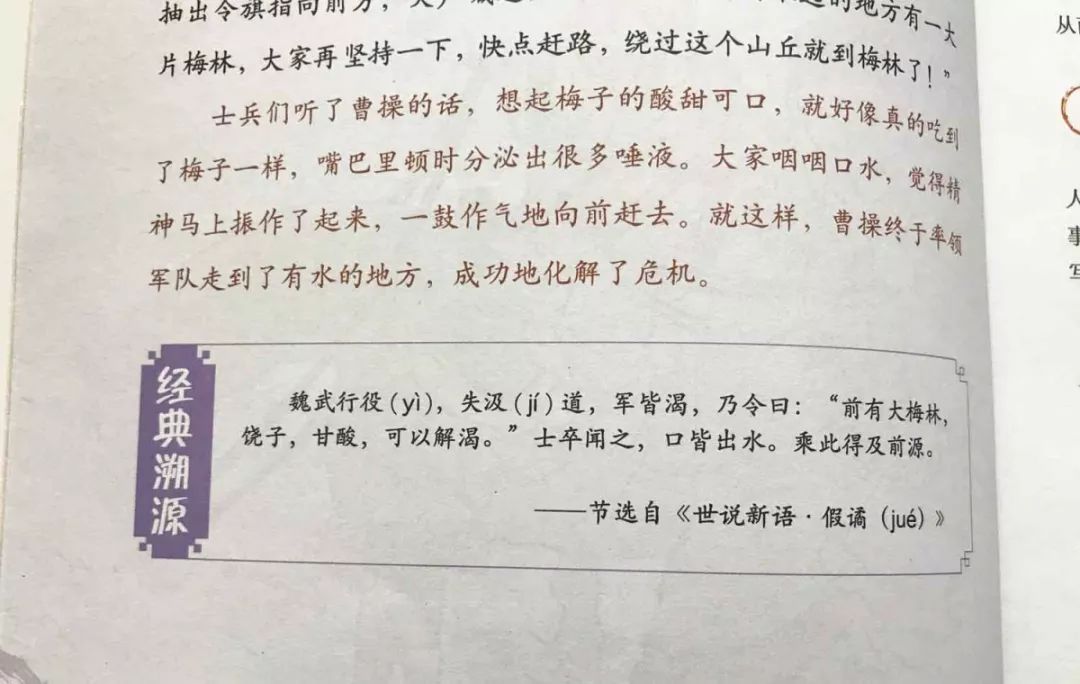 抽出令旗指向前方，
的地方有一大
片梅林，大家再坚持一下，快点赶路，绕过这个山丘就到梅林了！”
士兵们听了曹操的话，想起梅子的酸甜可口，就好像真的吃到
了梅子一样，嘴巴里顿时分泌出很多唾液。大家咽咽口水，觉得精
神马上振作了起来，一鼓作气地向前赶去。就这样，曹操终于率领
军队走到了有水的地方，成功地化解了危机。
经典溯源
魏武行役（yì），失汲（jí）道，军皆渴，乃令曰：“前有大梅林，
饶子，甘酸，可以解渴。”士卒闻之，口皆出水。乘此得及前源。
——节选自《世说新语·假谲（jué）》
人
事
写